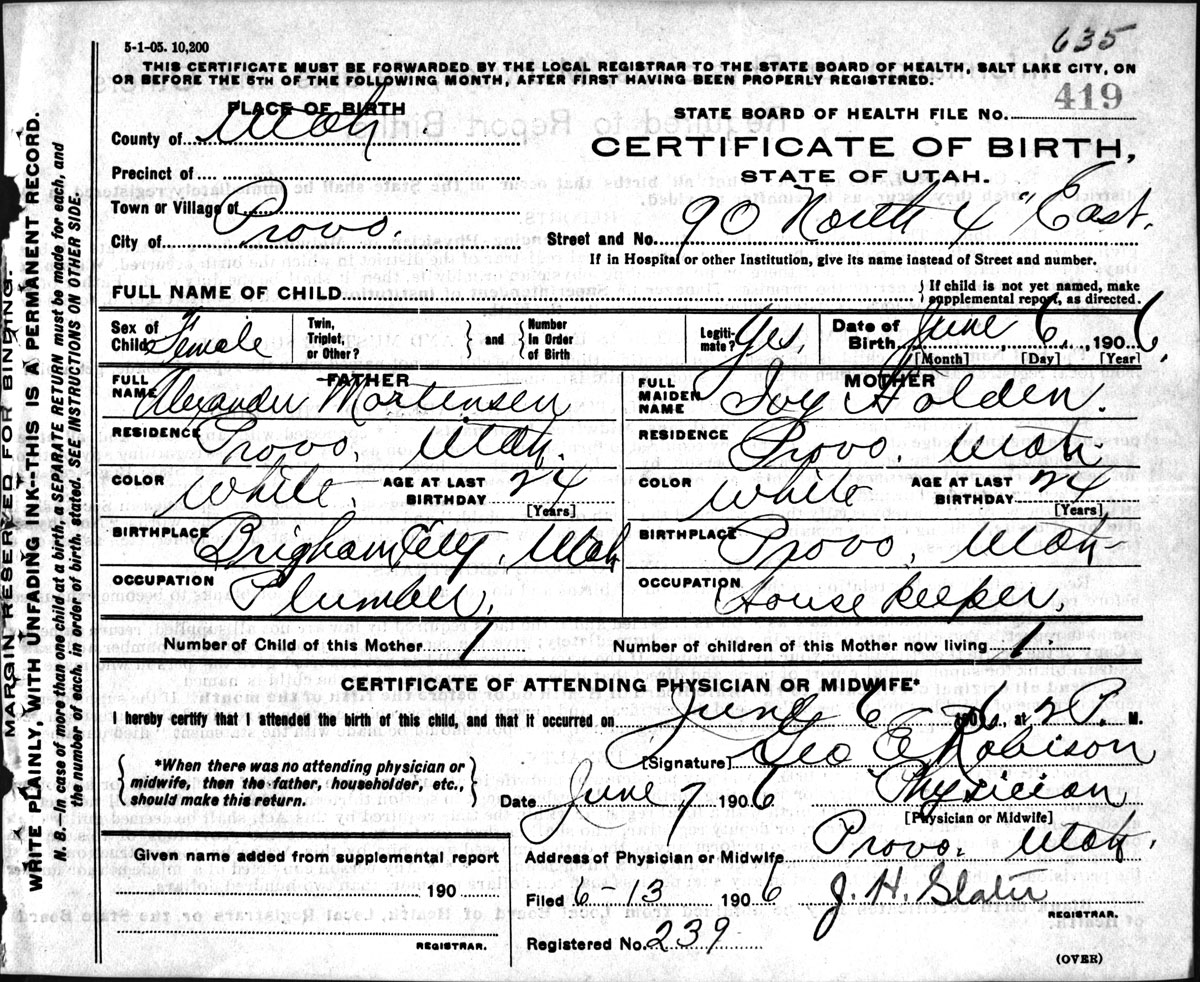 635
5-1-05. 10,200
THIS CERTIFICATE MUST BE FORWARDED BY THE LOCAL REGISTRAR TO THE STATE BOARD OF HEALTH, SALT LAKE CITY, ON
OR BEFORE THE 5TH OF THE FOLLOWING MONTH, AFTER FIRST HAVING BEEN PROPERLY REGISTERED.
419
PLACE OF BIRTH
STATE BOARD OF HEALTH FILE No.
County of Utah.
CERTIFICATE OF BIRTH,
STATE OF UTAH.
Precinct of
Town or Village of
City of Provo.
Street and No. 90 North 4" East.
If in Hospital or other Institution, give its name instead of Street and number.
FULL NAME OF CHILD
If child is not yet named, make
supplemental report, as directed.
Sex of Child Female
Twin, Triplet, or Other?
and
Number in Order of Birth
Legitimate? Yes,
Date of Birth June 6, 1906.
[Month] [Day] [Year]
FATHER
FULL NAME Alexander Mortensen
MOTHER
FULL MAIDEN NAME Ivy Holden.
RESIDENCE Provo, Utah.
RESIDENCE Provo. Utah.
COLOR White. AGE AT LAST BIRTHDAY 24 [Years]
COLOR White AGE AT LAST BIRTHDAY 24 [Years]
BIRTHPLACE Brigham City, Utah
BIRTHPLACE Provo, Utah
OCCUPATION Plumber,
OCCUPATION House keeper,
Number of Child of this Mother 1
Number of children of this Mother now living 1
CERTIFICATE OF ATTENDING PHYSICIAN OR MIDWIFE*
I hereby certify that I attended the birth of this child, and that it occurred on June 6 1906, at 2 P. M.
*When there was no attending physician or
midwife, then the father, householder, etc.,
should make this return.
[Signature] Geo E Robison
Date June 7 1906 Physician
[Physician or Midwife]
Given name added from supplemental report
190
REGISTRAR.
Address of Physician or Midwife Provo. Utah.
Filed 6-13 1906 J. H. Slater
REGISTRAR.
Registered No. 239
(OVER)
MARGIN RESERVED FOR BINDING.
WRITE PLAINLY, WITH UNFADING INK--THIS IS A PERMANENT RECORD.
N. B.—In case of more than one child at a birth, a SEPARATE RETURN must be made for each, and
the number of each, in order of birth, stated. SEE INSTRUCTIONS ON OTHER SIDE.